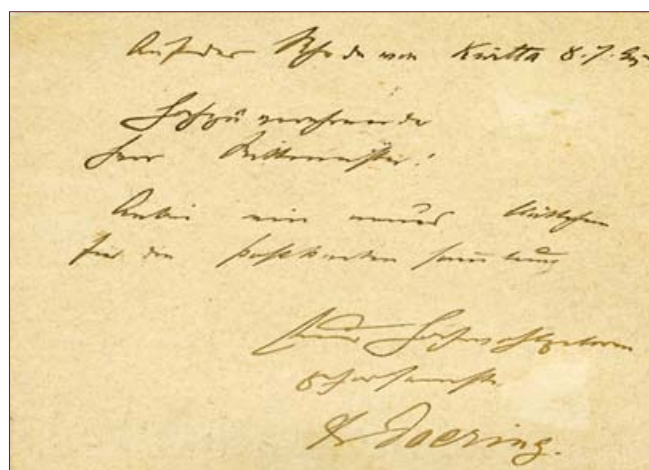 Auf der Rhede von Kwitta 8.7.95
Hochzuverehrender
Herr Rittmeister!
Anbei ein neues
für die Postkarten sammlung
Euer Hochwohlgeboren
gehorsamster
Doering.